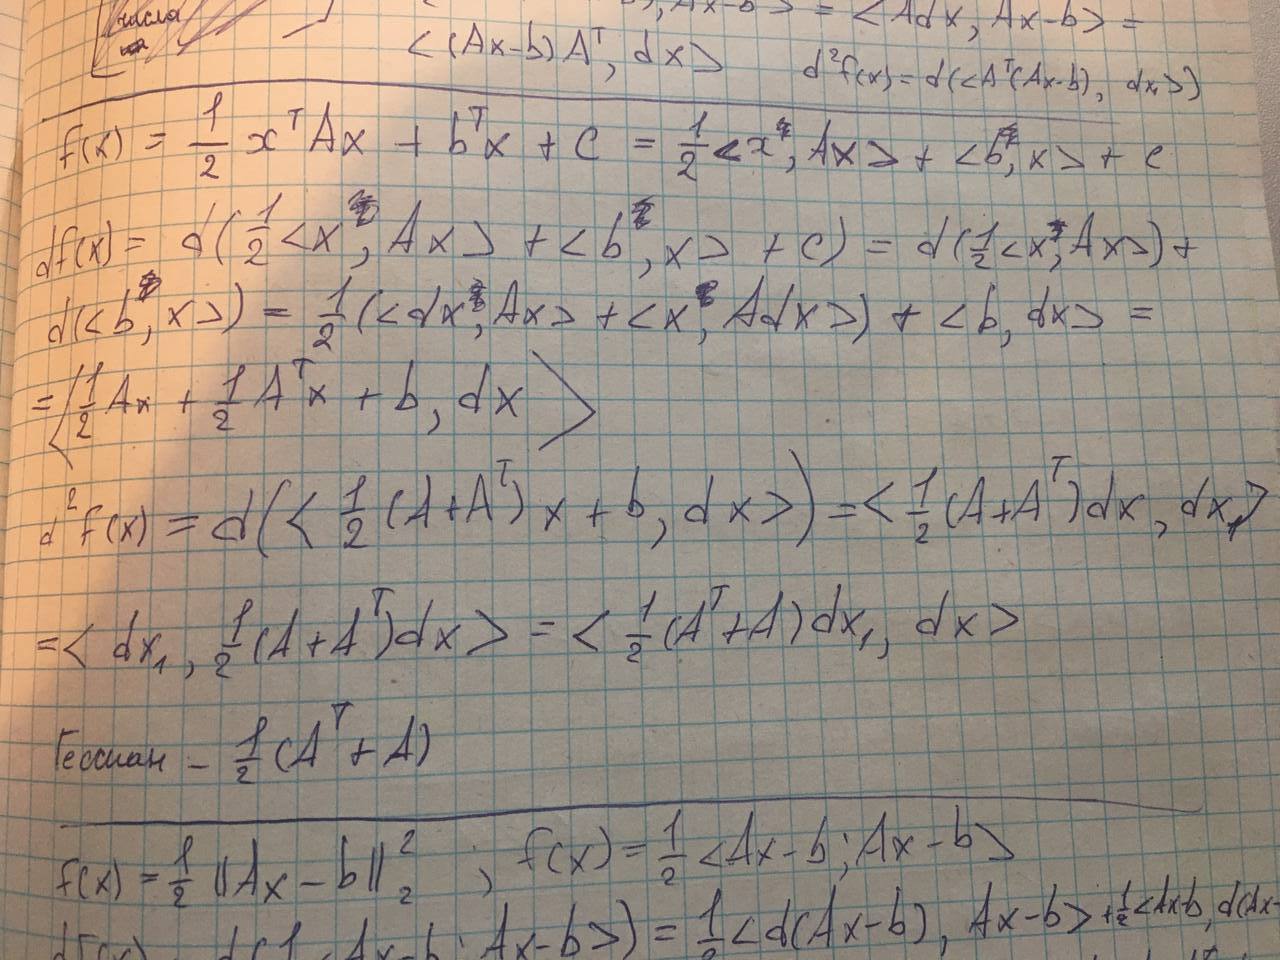 числа
, Ax-b> = <Adx, Ax-b> =
<(Ax-b)Aᵀ, dx> d²f(x) = d(<Aᵀ(Ax-b), dx₁>)
f(x) = 1/2 xᵀAx + bᵀx + c = 1/2 <x, Ax> + <b, x> + c
df(x) = d(1/2 <x, Ax> + <b, x> + c) = d(1/2 <x, Ax>) +
d(<b, x>) = 1/2 (<dx, Ax> + <x, Adx>) + <b, dx> =
= <1/2 Ax + 1/2 Aᵀx + b, dx>
d²f(x) = d(<1/2 (A+Aᵀ)x + b, dx>) = <1/2 (A+Aᵀ)dx, dx₁>
= <dx₁, 1/2 (A+Aᵀ)dx> = <1/2 (Aᵀ+A)dx₁, dx>
Гессиан - 1/2 (Aᵀ+A)
f(x) = 1/2 ||Ax-b||₂² ; f(x) = 1/2 <Ax-b; Ax-b>
Ax-b; Ax-b>) = 1/2 <d(Ax-b), Ax-b> + 1/2 <Ax-b, d(Ax-